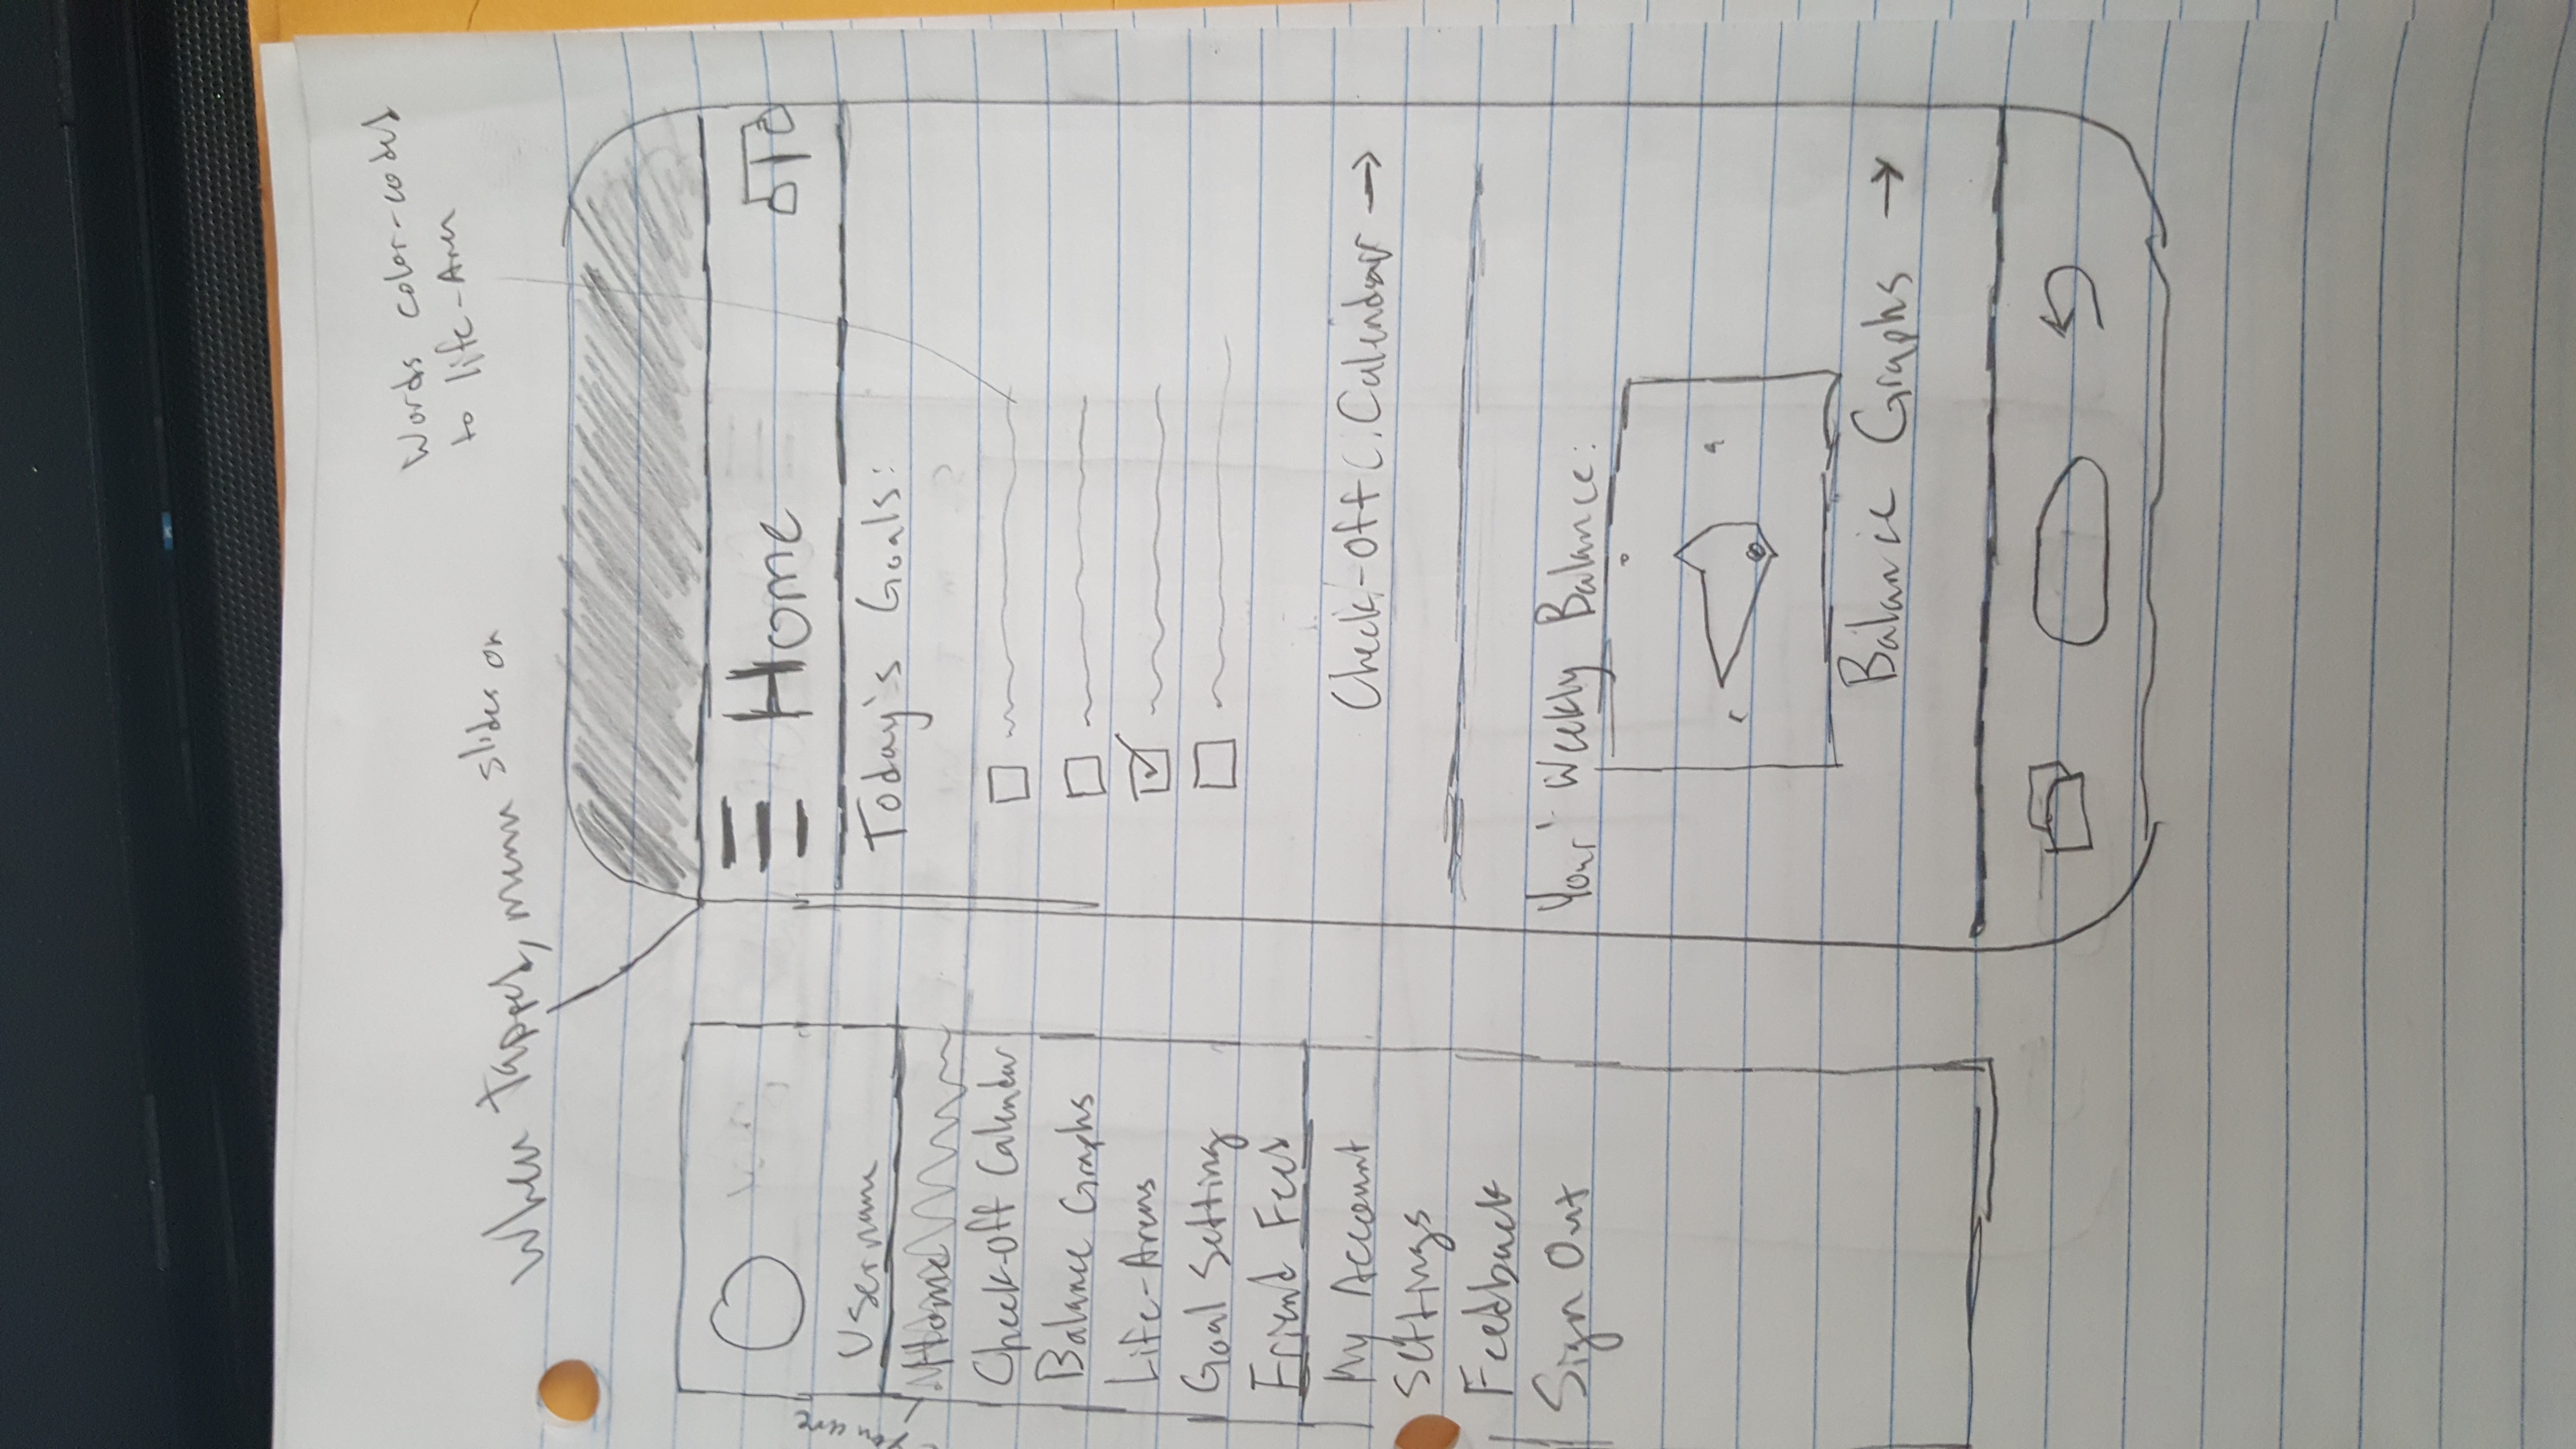 Words color-coded
to life-Area
When tapped, menu slides on
you are
Username
Home
Check-off Calendar
Balance Graphs
Life-Areas
Goal Setting
Friend Feed
My Account
Settings
Feedback
Sign Out
Home
Today's Goals:
Check-Off Calendar →
Your Weekly Balance:
Balance Graphs →